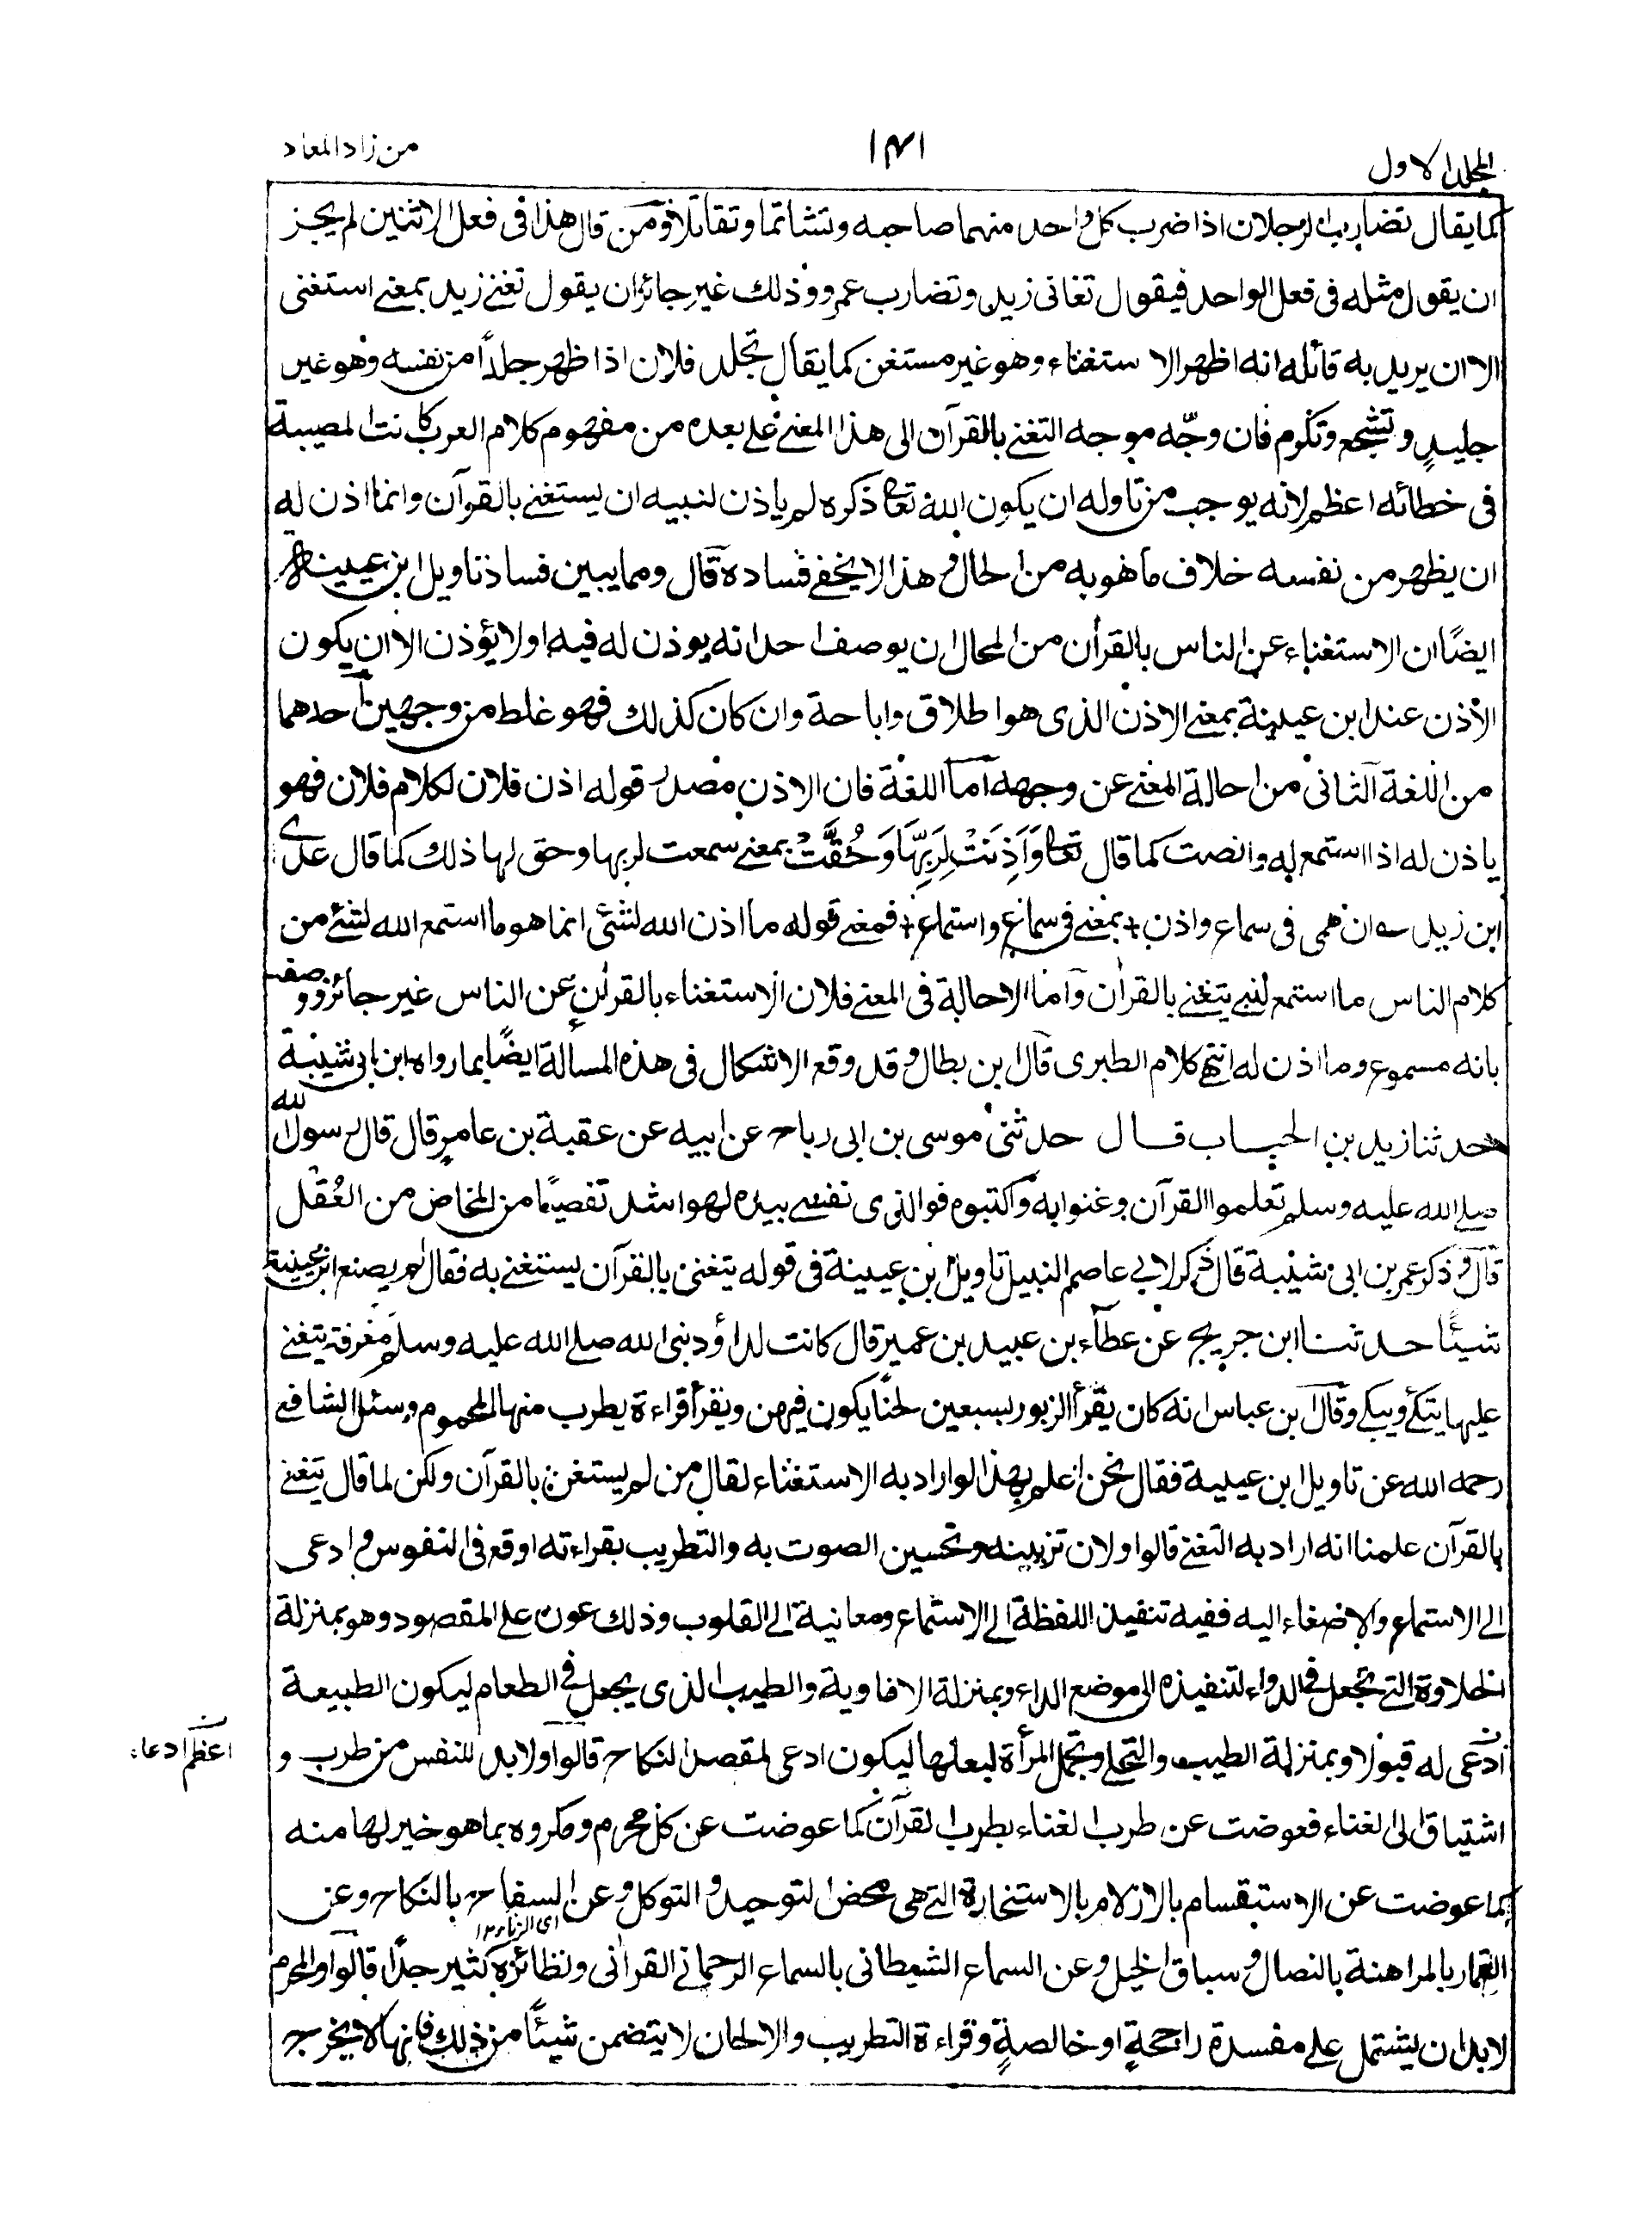 المجلد الاول
١٤١
من زاد المعاد
كما يقال تضارب الرجلان اذا ضرب كل واحد منهما صاحبه وتشاتما وتقاتلا ومن قال هذا فى فعل الاثنين لم يجز
ان يقول مثله فى فعل الواحد فيقول تغانى زيد وتضارب عمرو وذلك غير جائز ان يقول تغنى زيد بمعنى استغنى
الا ان يريد به قائله انه اظهر الاستغناء وهو غير مستغن كما يقال تجلد فلان اذا ظهر جلدًا من نفسه وهو غير
جليدٍ وتشجع وتكرم فان وجّه موجه التغنى بالقرآن الى هذا المعنى على بعده من مفهوم كلام العرب كانت المصيبة
فى خطائه اعظم لانه يوجب من تاوله ان يكون الله تعالى ذكره لم ياذن لنبيه ان يستغنى بالقرآن وانما اذن له
ان يظهر من نفسه خلاف ما هو به من الحال وهذا لا يخفى فساده قال ومما يبين فساد تاويل ابن عيينة
ايضًا ان الاستغناء عن الناس بالقرأن من المحال ان يوصف احد انه يوذن له فيه او لا يؤذن الا ان يكون
الأذن عند ابن عيينة بمعنى الاذن الذى هو اطلاق واباحة وان كان كذلك فهو غلط من وجهين احدهما
من اللغة الثانى من احالة المعنى عن وجهه اما اللغة فان الاذن مصدر قوله اذن فلان لكلام فلان فهو
ياذن له اذا استمع له وانصت كما قال تعالى وَاَذِنَتْ لِرَبِّهَا وَحُقَّتْ بمعنى سمعت لربها وحق لها ذلك كما قال عدى
ابن زيد ان همى فى سماع واذن + بمعنى فى سماع واستماع + فمعنى قوله ما اذن الله لشئى انما هو ما استمع الله لشئ من
كلام الناس ما استمع لنبى يتغنى بالقرأن واما الاحالة فى المعنى فلان الاستغناء بالقرأن عن الناس غير جائز وصفه
بانه مسموع وما اذن له انتهى كلام الطبرى قال ابن بطال وقد وقع الاشكال فى هذه المسألة ايضًا بما رواه ابن ابى شيبة
حدثنا زيد بن الحباب قال حدثنى موسى بن ابى رباح عن ابيه عن عقبة بن عامر قال قال رسول الله
صلى الله عليه وسلم تعلموا القرآن وغنوا به واكتبوه فوالذى نفسى بيده لهو اشد تفصيًا من المخاض من العُقل
قال وذكر عمر بن ابى شيبة قال ذكر لابى عاصم النبيل تاويل ابن عيينة فى قوله يتغنى بالقرآن يستغنى به فقال لم يصنع ابن عيينة
شيئًا حدثنا ابن جريج عن عطآء بن عبيد بن عمير قال كانت لداؤد نبى الله صلى الله عليه وسلم معرفة يتغنى
عليها يتكئ ويبكى وقال ابن عباس انه كان يقرأ الزبور بسبعين لحنًا يكون فيهن ويقرأ قراءة يطرب منها المحموم وسئل الشافعى
رحمه الله عن تاويل ابن عيينة فقال نحن اعلم بهذا لو اراد به الاستغناء لقال من لم يستغن بالقرآن ولكن لما قال يتغنى
بالقرآن علمنا انه اراد به التغنى قالوا ولان تزيينه وتحسين الصوت به والتطريب بقراءته اوقع فى النفوس وادعى
الى الاستماع والاصغاء اليه ففيه تنفيذ اللفظة الى الاستماع ومعانية الى القلوب وذلك عون على المقصود وهو بمنزلة
الحلاوة التى تجعل فى الدواء لتنفيذه الى موضع الداء وبمنزلة الافاوية والطيب الذى يجعل فى الطعام ليكون الطبيعة
ادعى له قبولا وبمنزلة الطيب والتحلى وتجمل المرأة لبعلها ليكون ادعى لمقصد النكاح قالوا ولا بد للنفس من طرب و
اعظم ادعاء
اشتياق الى الغناء فعوضت عن طرب الغناء بطرب القرآن كما عوضت عن كل محرم ومكروه بما هو خير لها منه
كما عوضت عن الاستقسام بالازلام بالاستخارة التى هى محض التوحيد والتوكل وعن السفاح بالنكاح وعن
اى الزنا ١٢
القمار بالمراهنة بالنصال وسباق الخيل وعن السماع الشيطانى بالسماع الرحمانى القرأنى ونظائره كثير جدًا قالوا والمحرم
لا بد ان يشتمل على مفسدة راجحةٍ او خالصةٍ وقراءة التطريب والالحان لا يتضمن شيئًا من ذلك فانها لا يخرج